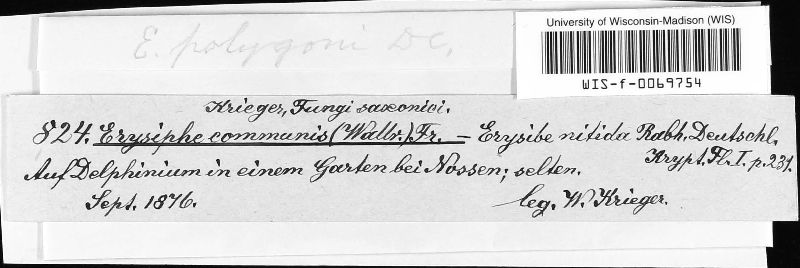 E. polygoni DC.
University of Wisconsin-Madison (WIS)
WIS-f-0069754
Krieger, Fungi saxonici.
824. Erysiphe communis (Wallr.) Fr. – Erysibe nitida Rabh. Deutschl.
Krypt. Fl. I. p. 231.
Auf Delphinium in einem Garten bei Nossen; selten.
Sept. 1876.
leg. W. Krieger.